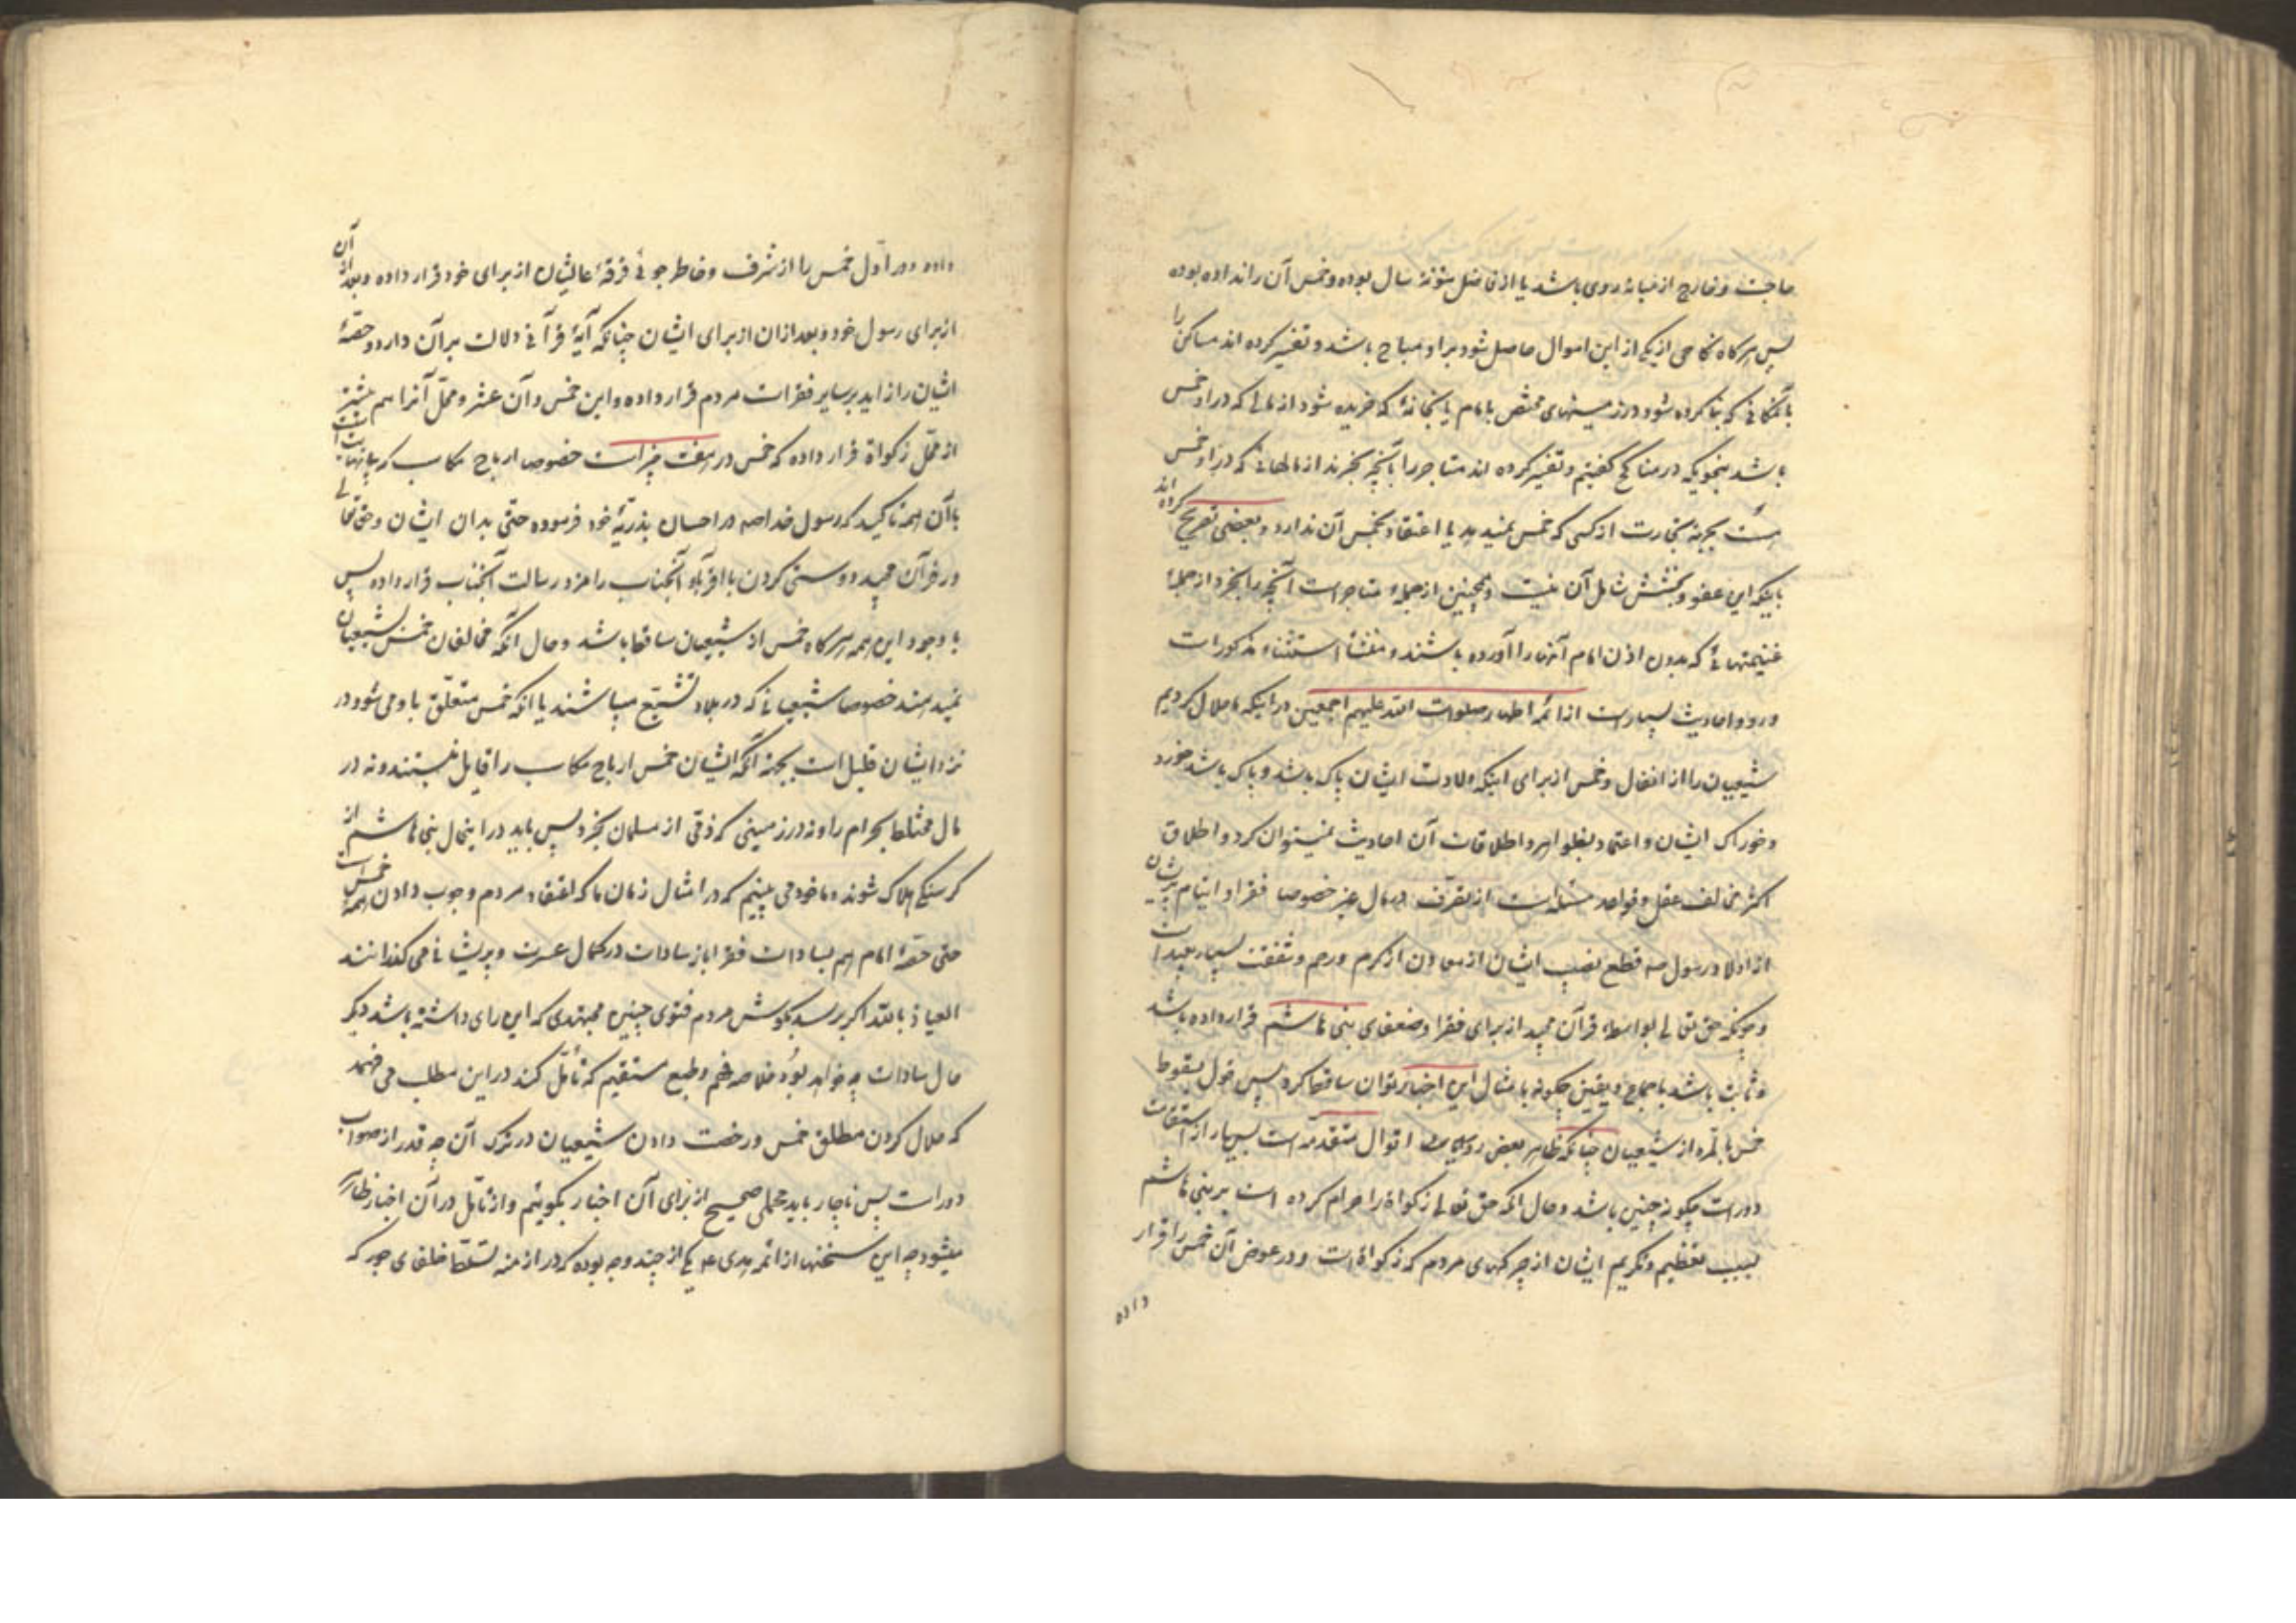 حاجت و خارج از میانه روی باشد یا از فاضل مئونة سال بوده و خمس آن را نداده بوده
پس هر گاه نکاحی از یکی از این اموال حاصل شود بر او مباح باشد و تفسیر کرده اند مساکن را
بآنمکانی که بنا کرده شود در زمینهای مختص بامام یا بخانۀ که خریده شود از مالی که در او خمس
باشد بنحویکه در مناکح گفتیم و تفسیر کرده اند متاجر را بآنچه بخرند از مالهائی که در او خمس
است بجهة تجارت از کسی که خمس نمیدهد یا اعتقاد بخمس آن ندارد و بعضی تصریح کرده اند
باینکه این عفو و بخشش شامل آن نیست و همچنین از جملۀ متاجر است آنچه را بخرد از جملۀ
غنیمتهائی که بدون اذن امام آنها را آورده باشند و منشأ استثناء مذکورات
ورود احادیث بسیار است از ائمه اطهار صلوات الله علیهم اجمعین در اینکه ما حلال کردیم
شیعیان را از انفال و خمس از برای اینکه ولادت ایشان پاک باشد و پاک باشد خورد
و خوراک ایشان و اعتماد بظواهر و اطلاقات آن احادیث نمیتوان کرد و اطلاق
اکثر مخالف عقل و قواعد مسئله است از تصرف در مال غیر خصوصا فقرا و ایتام پریشان
از اولاد رسول ص و قطع نصیب ایشان از معادن از کرم و رحم و شفقت بسیار بعید است
و چونکه حق تعالی بواسطۀ قرآن مجید از برای فقرا و ضعفای بنی هاشم قرار داده باشد
و ثابت باشد باجماع و یقین چگونه بامثال این اخبار توان ساقط کرد پس قول بسقوط
خمس بالمره از شیعیان چنانکه ظاهر بعض اقوال متقدمه است بسیار از استقامت
دور است چگونه چنین باشد و حال آنکه حق تعالی زکواة را حرام کرده است بر بنی هاشم
بسبب تعظیم و تکریم ایشان از چرکهای مردم که زکواة است و در عوض آن خمس را قرار
داده
داده و در اول خمس را از شرف و خاطر جوئی فرقۀ عالیشان از برای خود قرار داده و بعد از آن
از برای رسول خود و بعد از ان از برای ایشان چنانکه آیۀ قرآنی دلالت بر آن دارد و حصۀ
ایشان را زاید بر سایر فقرات مردم قرار داده و این خمس و آن عشر و محل آنرا هم بیشتر
از محل زکواة قرار داده که خمس در هفت چیز است خصوصا ارباح مکاسب که بی نهایت است
با آن همه تاکید که رسول خدا ص در احسان بذریۀ خود فرموده حتی بدان ایشان و حق تعالی
در قرآن مجید دوستی کردن با اقربآء آنجناب را مزد رسالت آنجناب قرار داده پس
با وجود این همه هر گاه خمس از شیعیان ساقط باشد و حال آنکه مخالفان خمس بشیعیان
نمیدهند خصوصا شیعیانی که در بلاد تشیع میباشند یا آنکه خمس متعلق باو می شود در
نزد ایشان قلیل است بجهة آنکه ایشان خمس ارباح مکاسب را قایل نیستند و نه در
مال مختلط بحرام را و نه در زمینی که ذمی از مسلمان بخرد پس باید در اینحال بنی هاشم از
گرسنگی هلاک شوند و ما خود می بینیم که در امثال زمان ما که اعتقاد مردم وجوب دادن همۀ خمس است
حتی حصۀ امام هم بسادات فقرا باز سادات در کمال عسرت و پریشانی می گذرانند
العیاذ بالله اگر برسد بگوش مردم فتوی چنین مجتهدی که این رای داشته باشد دیگر
حال سادات چه خواهد بود و خلاصه فهم و طبع مستقیم که تأمل کند در این مطلب می فهمد
که حلال کردن مطلق خمس و رخصت دادن شیعیان در ترک آن چه قدر از صواب
دور است پس ناچار باید محملی صحیح از برای آن اخبار بگوئیم و از تأمل در آن اخبار ظاهر
میشود چه این سخنها از ائمه هدی ع یکی از چند وجه بوده که در ازمنه تسلط خلفای جور که